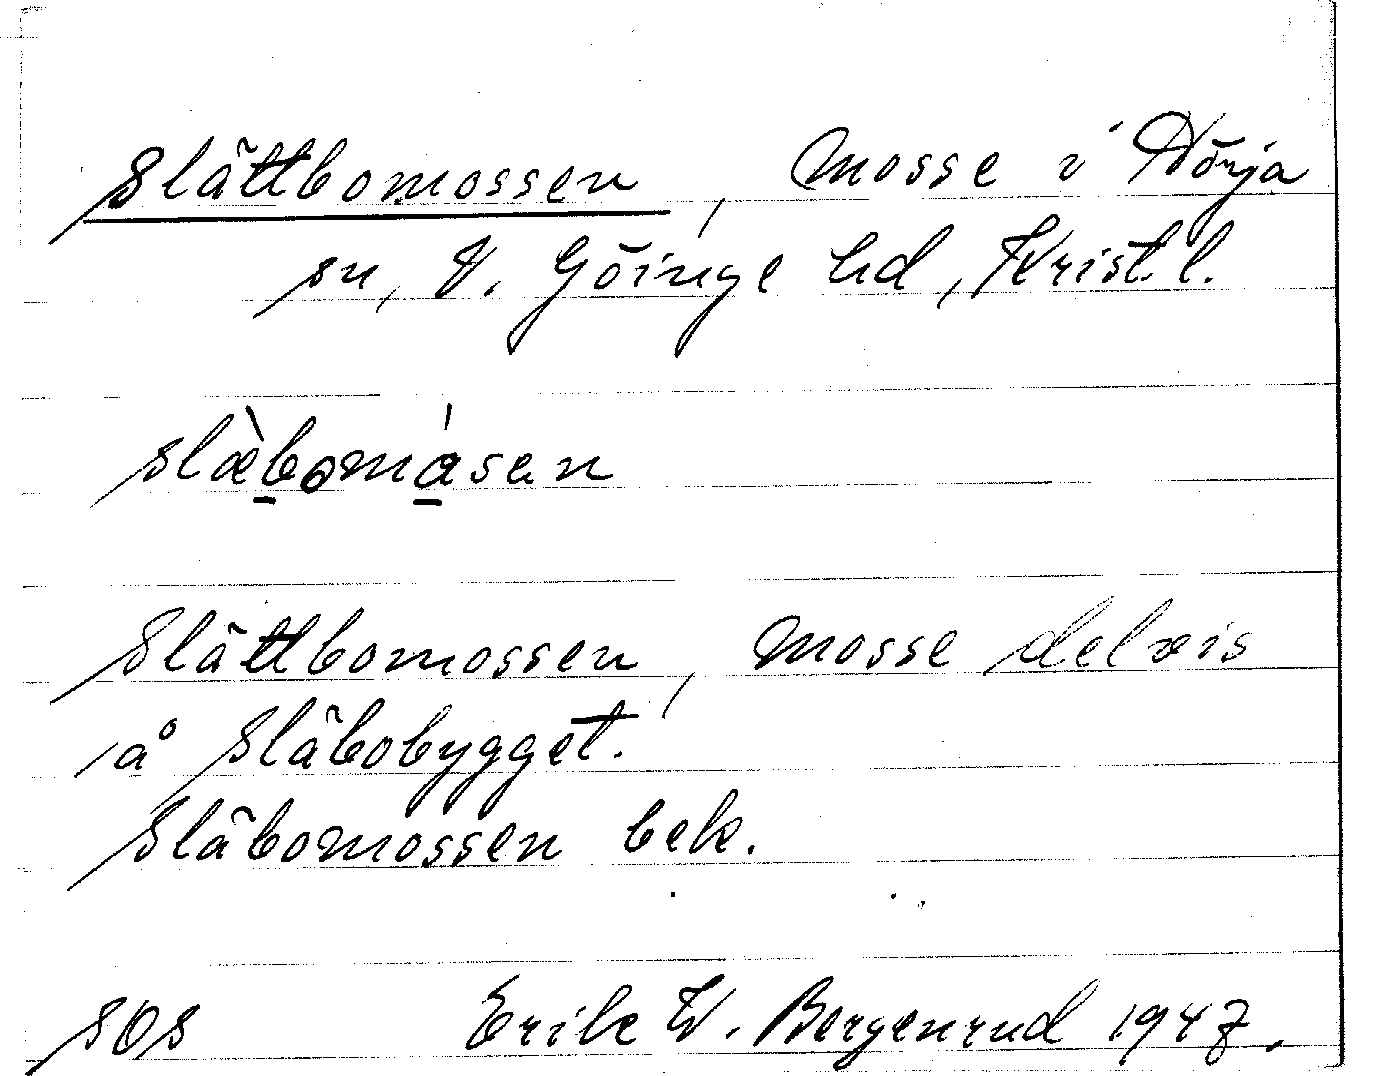 Slättbomossen, Mosse i Nörja
sn, V. Göinge hd, Krist. l.
slæ̀bomásen
Slättbomossen, Mosse delvis
å Släbobygget.
Släbomossen bek.
SOS Erik W. Bergenrud 1947.